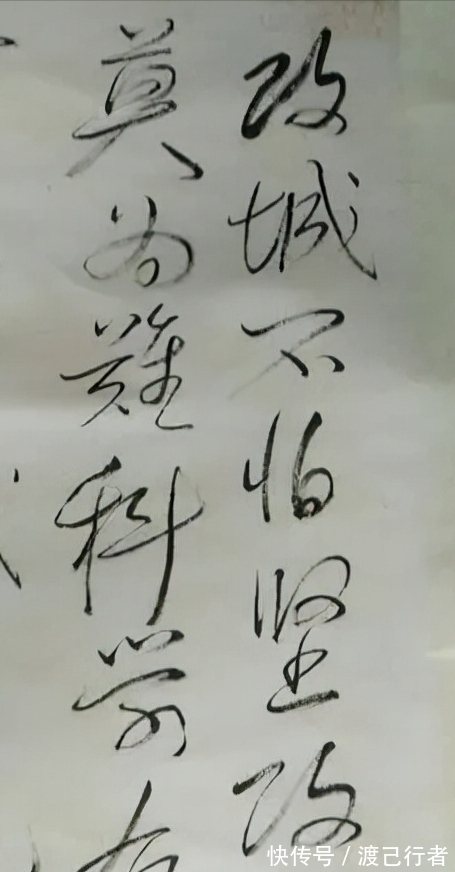 攻城不怕坚攻
莫为難科学有
快传号/渡己行者